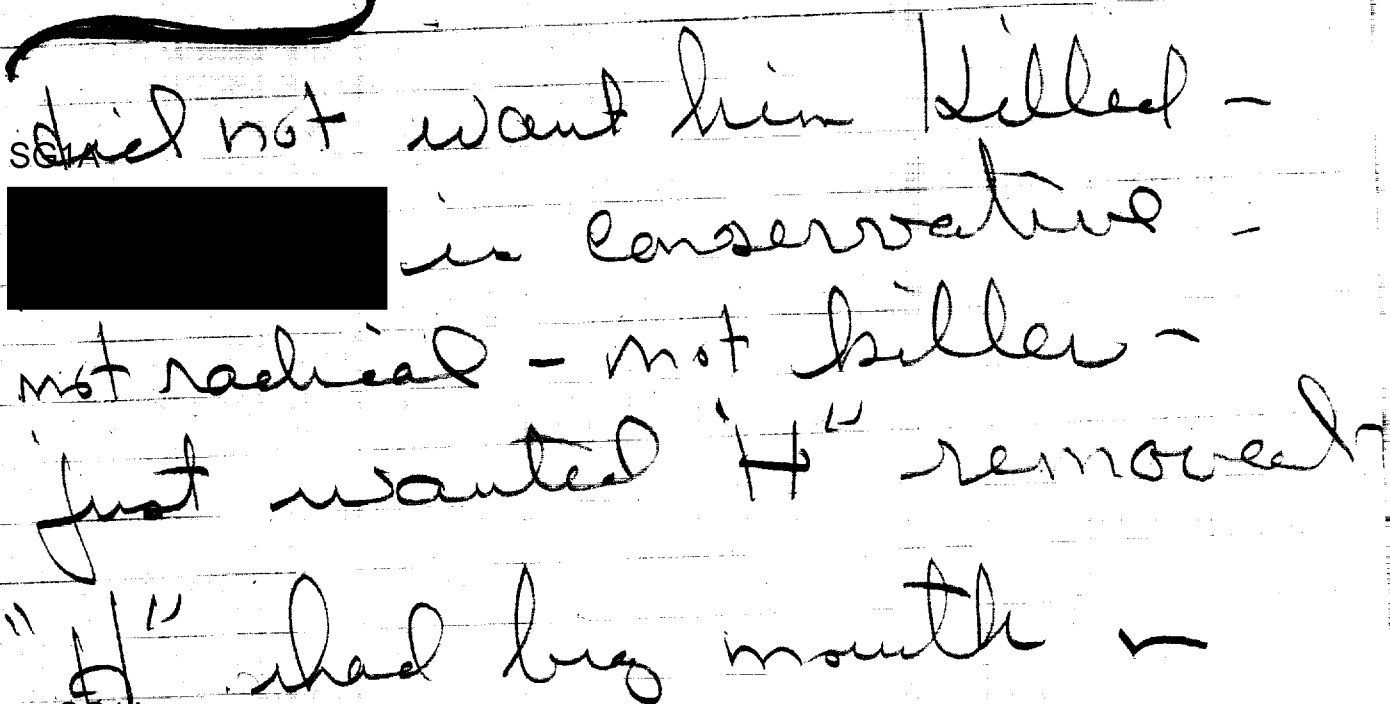 did not want him killed -
SG1A
is conservative -
not radical - not killer -
just wanted "H" removed -
"H" had big mouth -